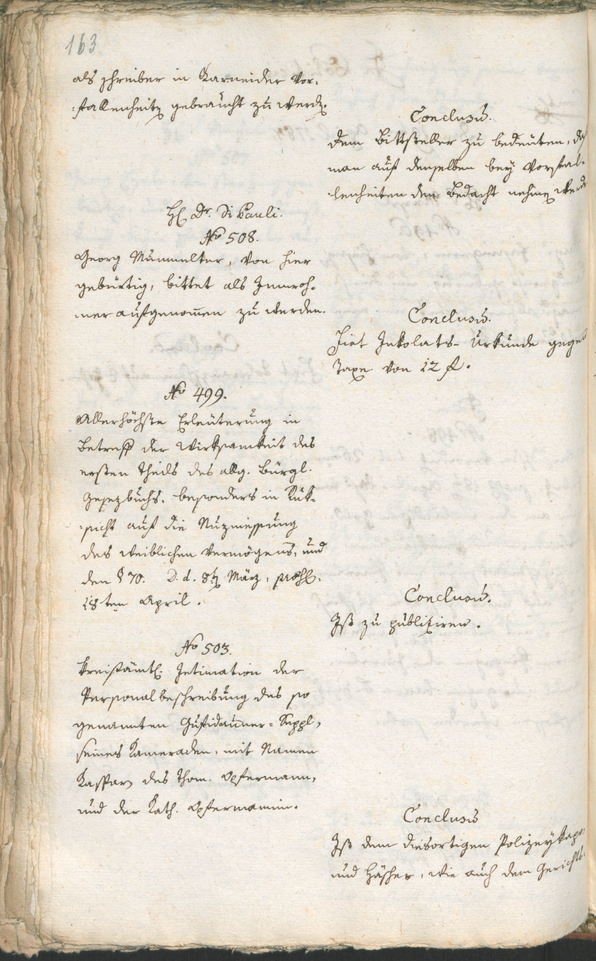 163
als Schreiber in Karneider vor¬
fallenheitz gebraucht zu werdz.
Conclusū.
dem Bittsteller zu bedeuten, daß
man auf denselben bey Vorfal¬
lenheiten den Bedacht nehmen werd
H. Dr. Di Pauli.
No 508.
Georg Mummelter, von hier
gebürtig, bittet als Innwoh¬
ner aufgenom̄en zu werden.
Conclusū.
Fiat Inkolats-Urkunde gegen
Taxe von 12 f.
No 499.
Allerhöchste Erleüterung in
Betreff der Wirksamkeit des
ersten Theils des allg. bürgl.
Gesezbuchs, besonders in Rük¬
sicht auf die Nuzniessung
des weiblichen Vermögens, und
den § 70. D. d. 8ten März,
18ten April.
Conclusū.
Ist zu publiziren.
No 503.
Kreisämtl. Intimation der
Personalbeschreibung des so
genannten Gufidauner-Seppl,
seines Kameraden, mit Namen
Kaspar, des Thom. Opfermann,
und der Kath. Opfermannin.
Conclusū
Ist dem diesortigen Polizeykapo
und Häscher, wie auch dem Gerichts¬